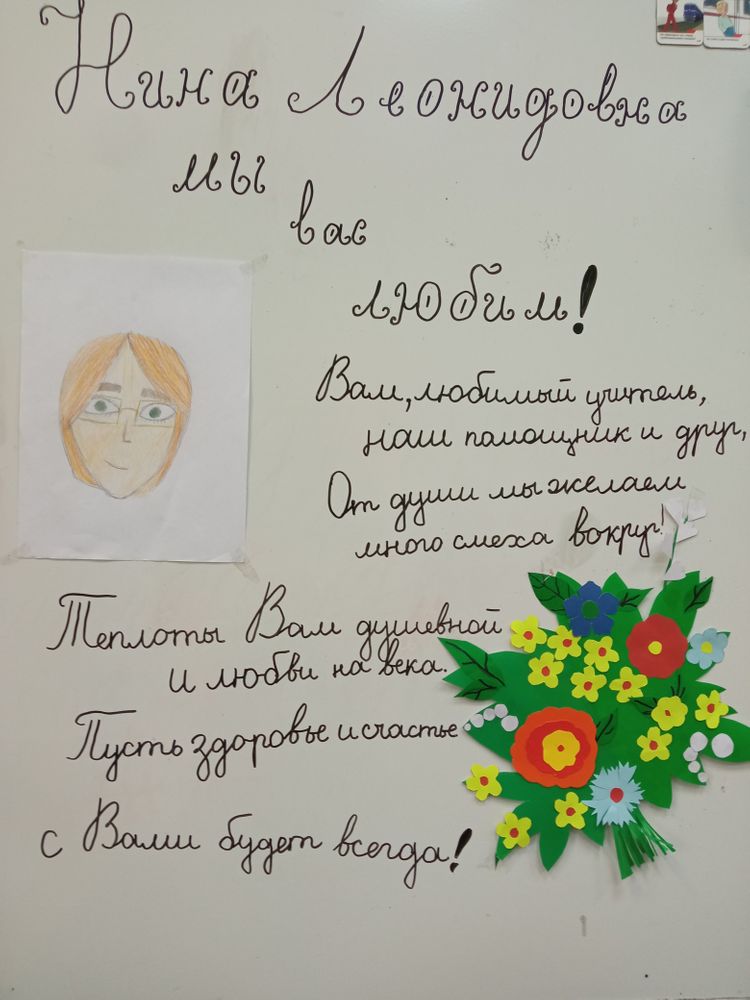 Нина Леонидовна
мы
вас
любим!
Вам, любимый учитель,
наш помощник и друг,
От души мы желаем
много смеха вокруг!
Теплоты Вам душевной
и любви на века.
Пусть здоровье и счастье
с Вами будет всегда!